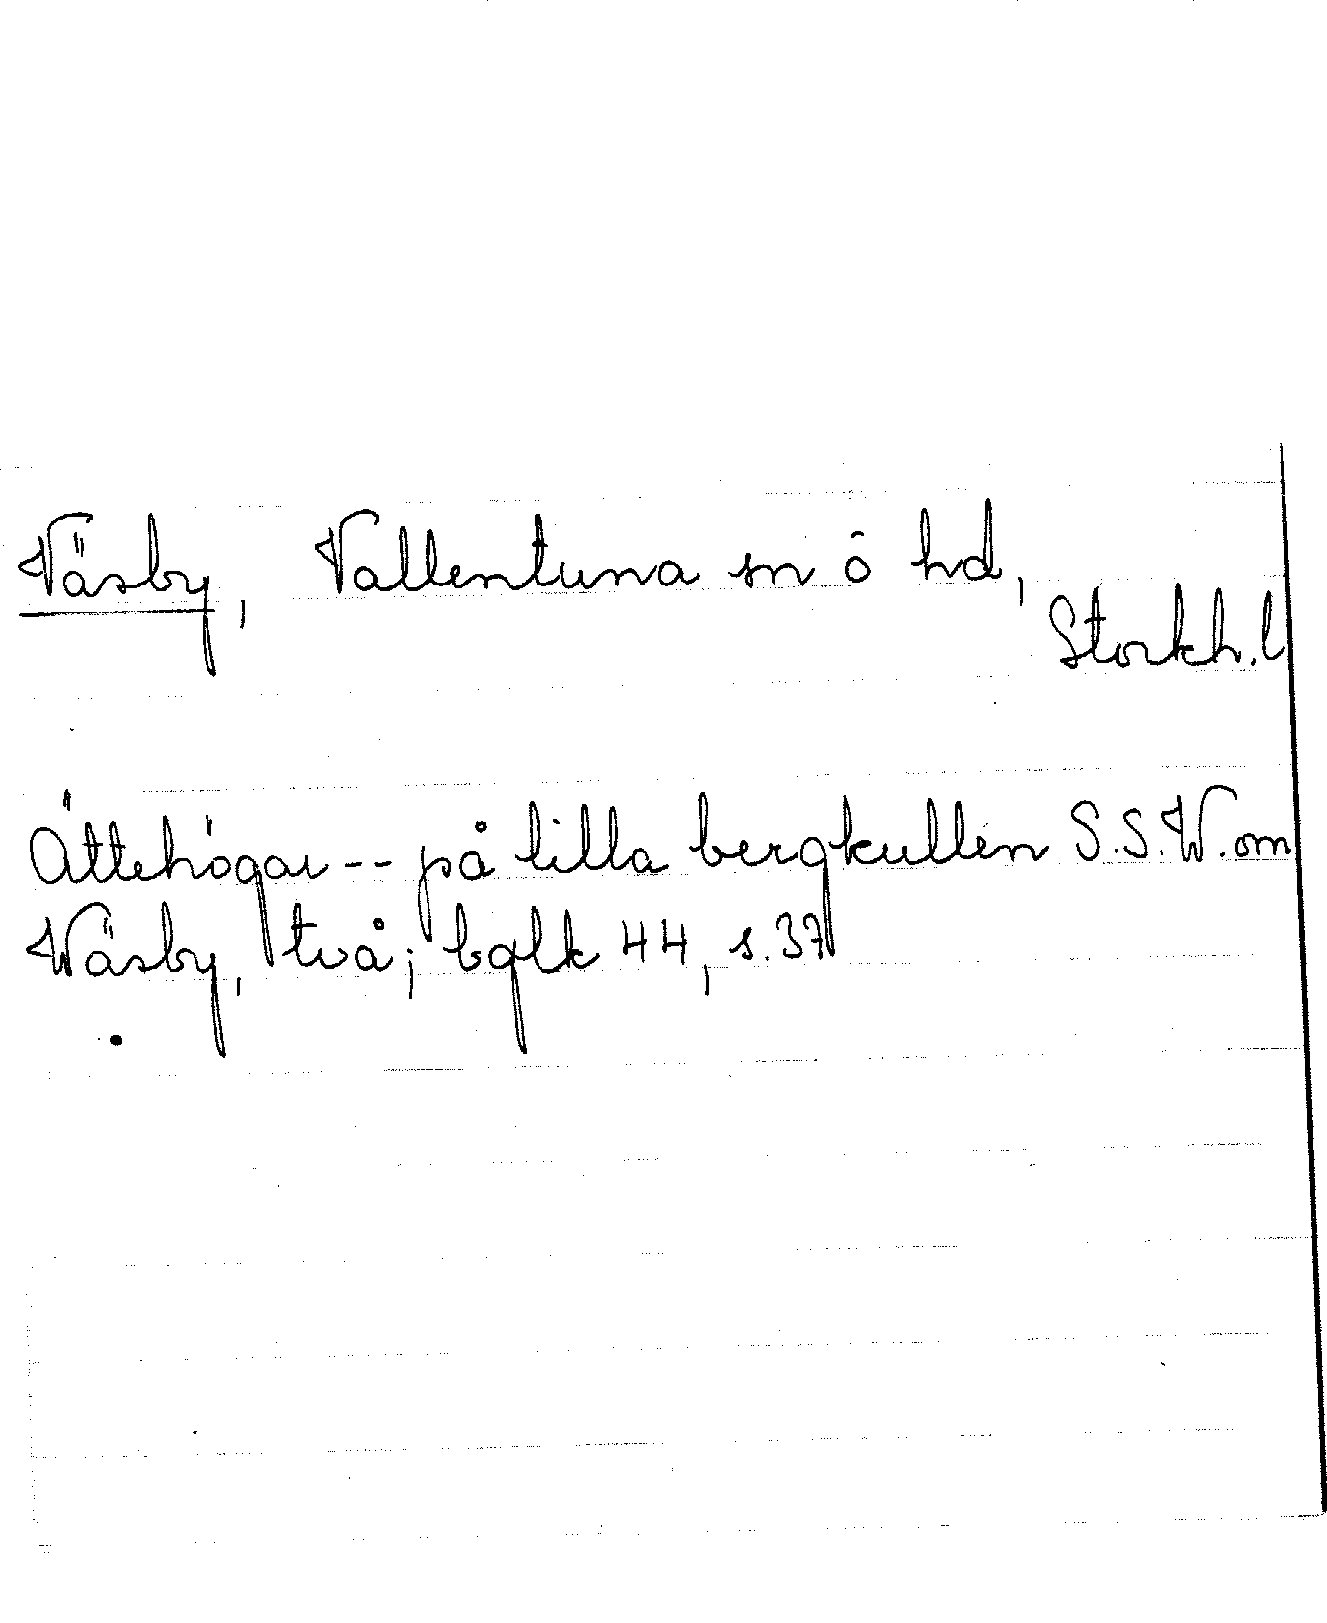 Väsby, Vallentuna sn ö hd,
Stockh.l
Ättehögar -- på lilla bergkullen S.S.W. om
Wäsby, två; bglk 44, s. 37